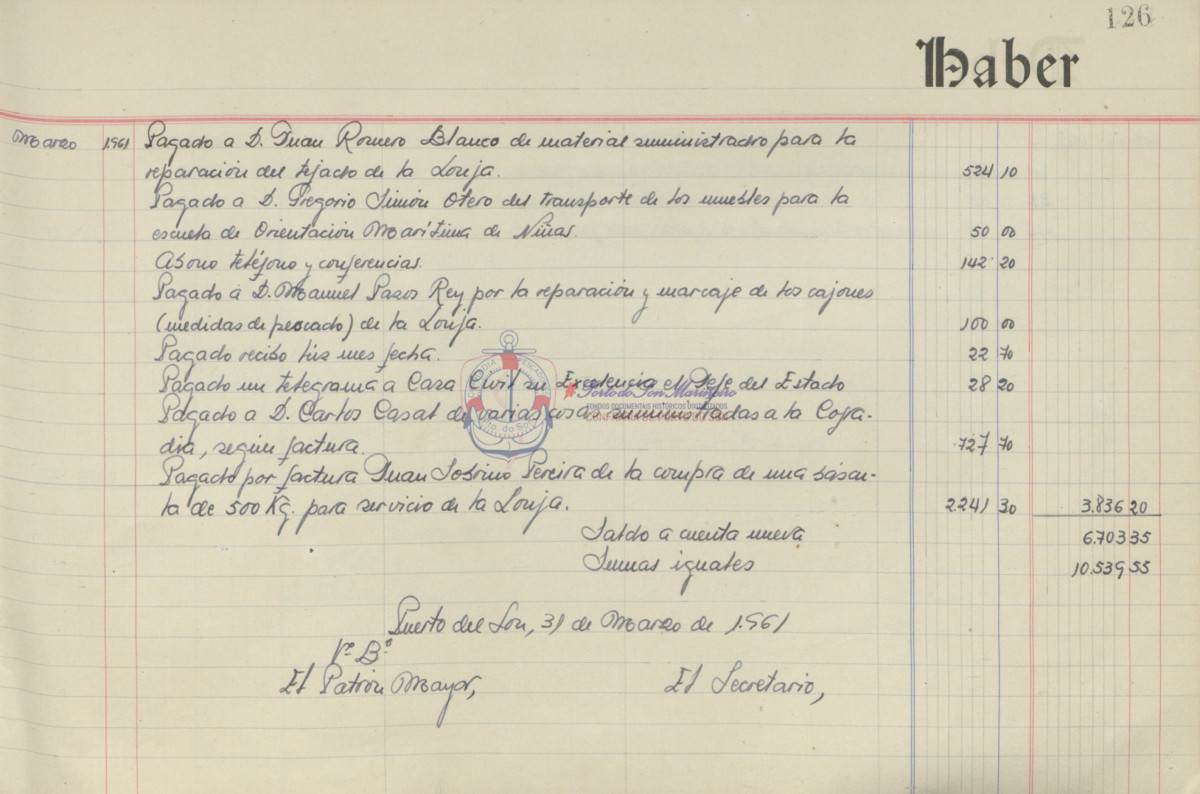 126
Haber
Marzo 1.961 Pagado a D. Juan Romero Blanco de material suministrado para la
reparación del tejado de la Lonja. 524 10
Pagado a D. Gregorio Simón Otero del transporte de los muebles para la
escuela de Orientación Marítima de Niñas. 50 00
Abono teléfono y conferencias. 142 20
Pagado a D. Manuel Pazos Rey por la reparación y marcaje de los cajones
(medidas de pescado) de la Lonja. 100 00
Pagado recibo luz mes fecha. 22 70
Pagado un telegrama a Casa Civil su Excelencia el Jefe del Estado 28 20
Pagado a D. Carlos Casal de varias cosas suministradas a la Cofra-
dia, según factura. 727 70
Pagado por factura Juan Sobrino Pereira de la compra de una báscu-
la de 500 Kg. para servicio de la Lonja. 2241 30 3.836 20
Saldo a cuenta nueva 6.703 35
Sumas iguales 10.539 55
Puerto del Son, 31 de Marzo de 1.961
Vº Bº
El Patrón Mayor, El Secretario,
#Porto do Son Mariñeiro
FONDOS DOCUMENTAIS HISTÓRICOS DIXITALIZADOS
CONFRARÍA DE PORTO DO SON